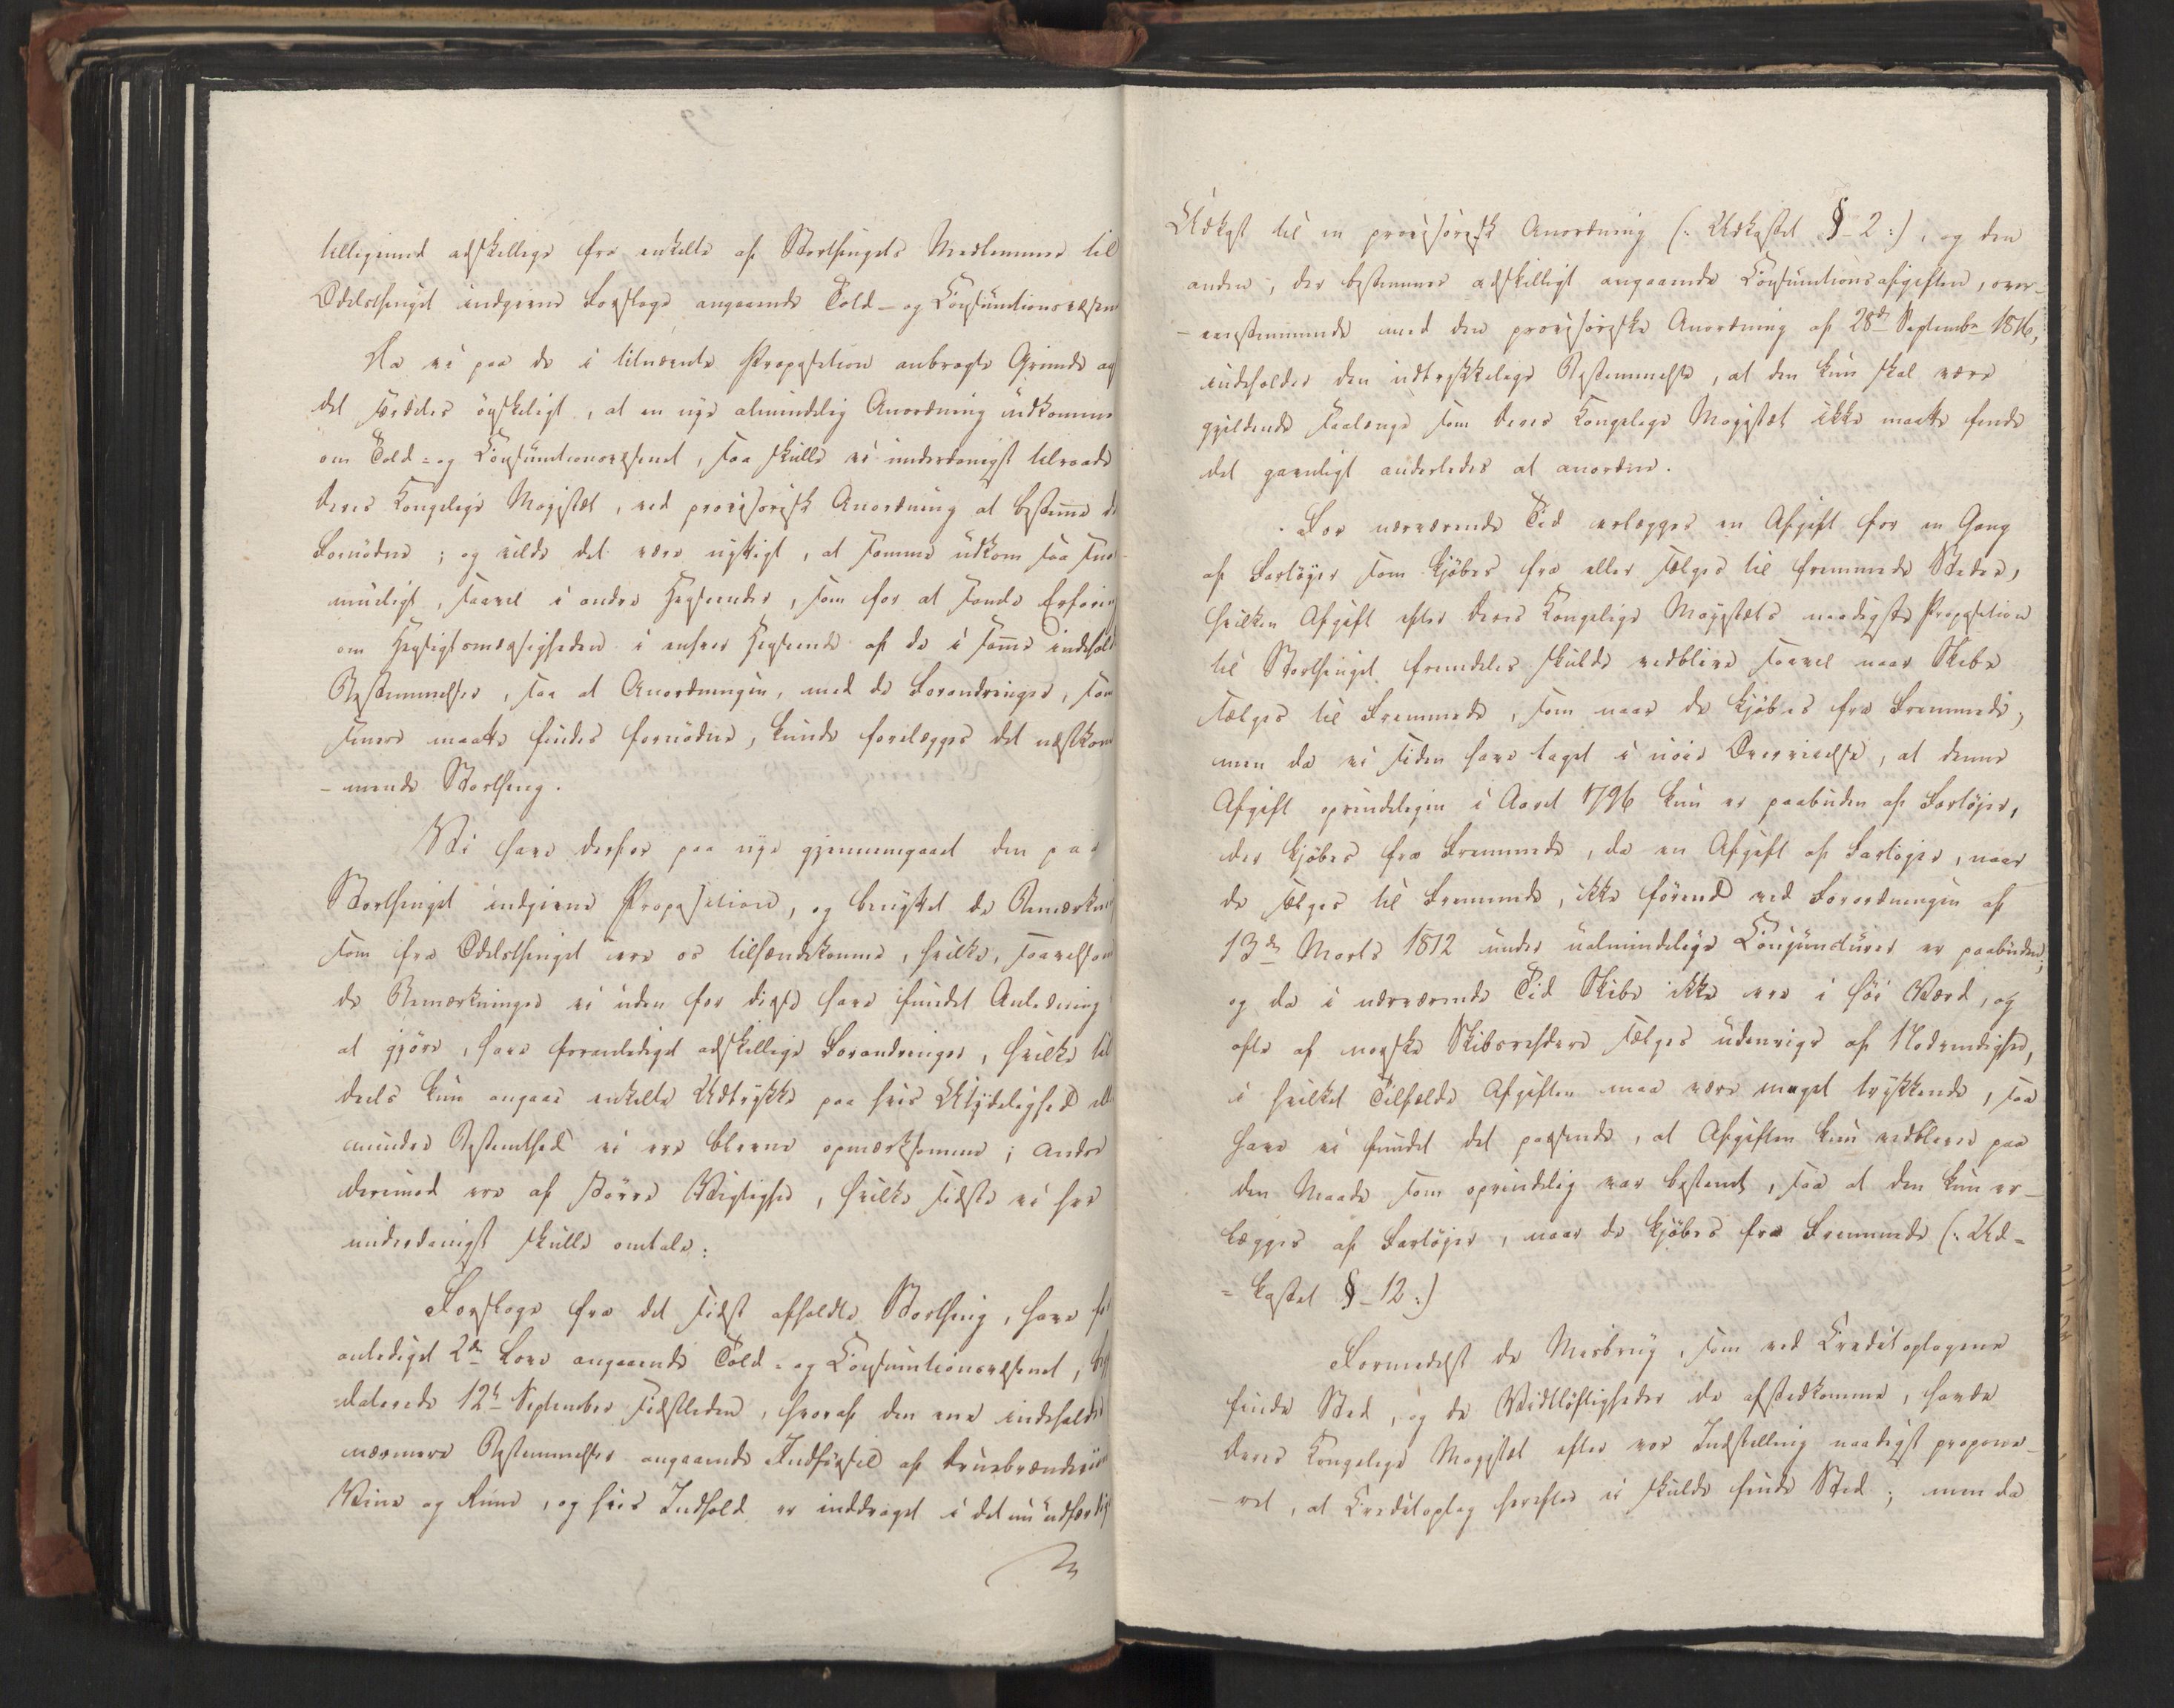 tilligemed adskillige fra enkelte af Storthingets Medlemmer til
Odelsthinget indgivne Forslage angaaende Told- og Consumtionsvæsen
Da vi paa de i bemeldte Proposition anbragte Grunde og
det særdeles ønskeligt, at en nye almindelig Anordning udkommer
om Told- og Consumtionsvæsenet, saa skulle vi underdanigst tilraade
Deres Kongelige Majestæt, ved provisorisk Anordning at bestemme de
Fornødne; og vilde det være vigtigt, at samme udkom saa snar
mueligt, saavel i andre Hensender, som for at samle Erfaring
om Hensigtsmæssigheden i enhver Henseende af de i samme indehold
Bestemmelser, saa at Anordningen, med de Forandringer, som
senere maatte findes fornødne, kunde forelægges det næstkom
- mende Storthing.
Vi have derfor paa nye gjennemgaaet den paa
Storthinget indgivne Proposition, og benyttet de Bemærkning
som fra Odelsthinget ere os tilhændekomne, hvilke, saavelsom
de Bemærkninger vi uden for disse have fundet Anledning
at gjøre, have foranlediget adskillige Forandringer, hvilke til
deels kun angaae enkelte Udtrykke paa hvis Utydelighed ell
mindre Bestemthed vi ere blevne opmærksomme; andre
derimod ere af større Vigtighed, hvilke sidste vi her
underdanigst skulle omtale:
Forslage fra det sidst afholdte Storthing, have for
anlediget 2de Love angaaende Told- og Consumtionsvæsenet, beg
daterede 12te September sidstleden, hvoraf den ene indeholder
nærmere Bestemmelser angaaende Indførsel af Druebrændeviin
Vine og Rum, og hvis Indhold er inddraget i det nu udfærdig
Udkast til en provisorisk Anordning (: Udkastet § 2 :), og den
anden, der bestemmer adskilligt angaaende Consumtionsafgiften, over-
- eensstemmende med den provisoriske Anordning af 28de September 1816,
indeholder den udtrykkelige Bestemmelse, at den kun skal være
gjeldende saalænge som Deres Kongelige Majestæt ikke maatte finde
det gavnligt anderledes at anordne.
For nærværende Tid erlægges en Afgift for en Gang
af Fartøyer som kjøbes fra eller sælges til fremmede Steder,
hvilken Afgift efter Deres Kongelige Majestæts naadigste Proposition
til Storthinget fremdeles skulde vedblive saavel naar Skibe
sælges til Fremmede, som naar de kjøbes fra Fremmede;
men da vi siden have taget i nøie Overveielse, at denne
Afgift oprindeligen i Aaret 1796 kun er paabuden af Fartøjer,
der kjøbes fra Fremmede, da en Afgift af Fartøjer, naar
de sælges til Fremmede, ikke førend ved Forordningen af
13de Marts 1812 under ualmindelige Conjuncturer er paabuden;
og da i nærværende Tid Skibe ikke ere i høi Værd, og
ofte af norske Skibsrhedere sælges udenrigs af Nødvendighed,
i hvilket Tilfælde Afgiften maa være meget trykkende, saa
have vi fundet det passende, at Afgiften kun vedbliver paa
den Maade som oprindelig var bestemt, saa at den kun er-
lægges af Fartøjer, naar de kjøbes fra Fremmede (: Ud-
= kastet § 12 :)
Formedelst de Misbrug, som ved Creditoplagene
finde Sted, og de Vidtløftigheder de afstedkomme, havde
Deres Kongelige Majestæt efter vor Indstilling naadigst propone-
- ret, at Creditoplag herefter ei skulde finde Sted; men da